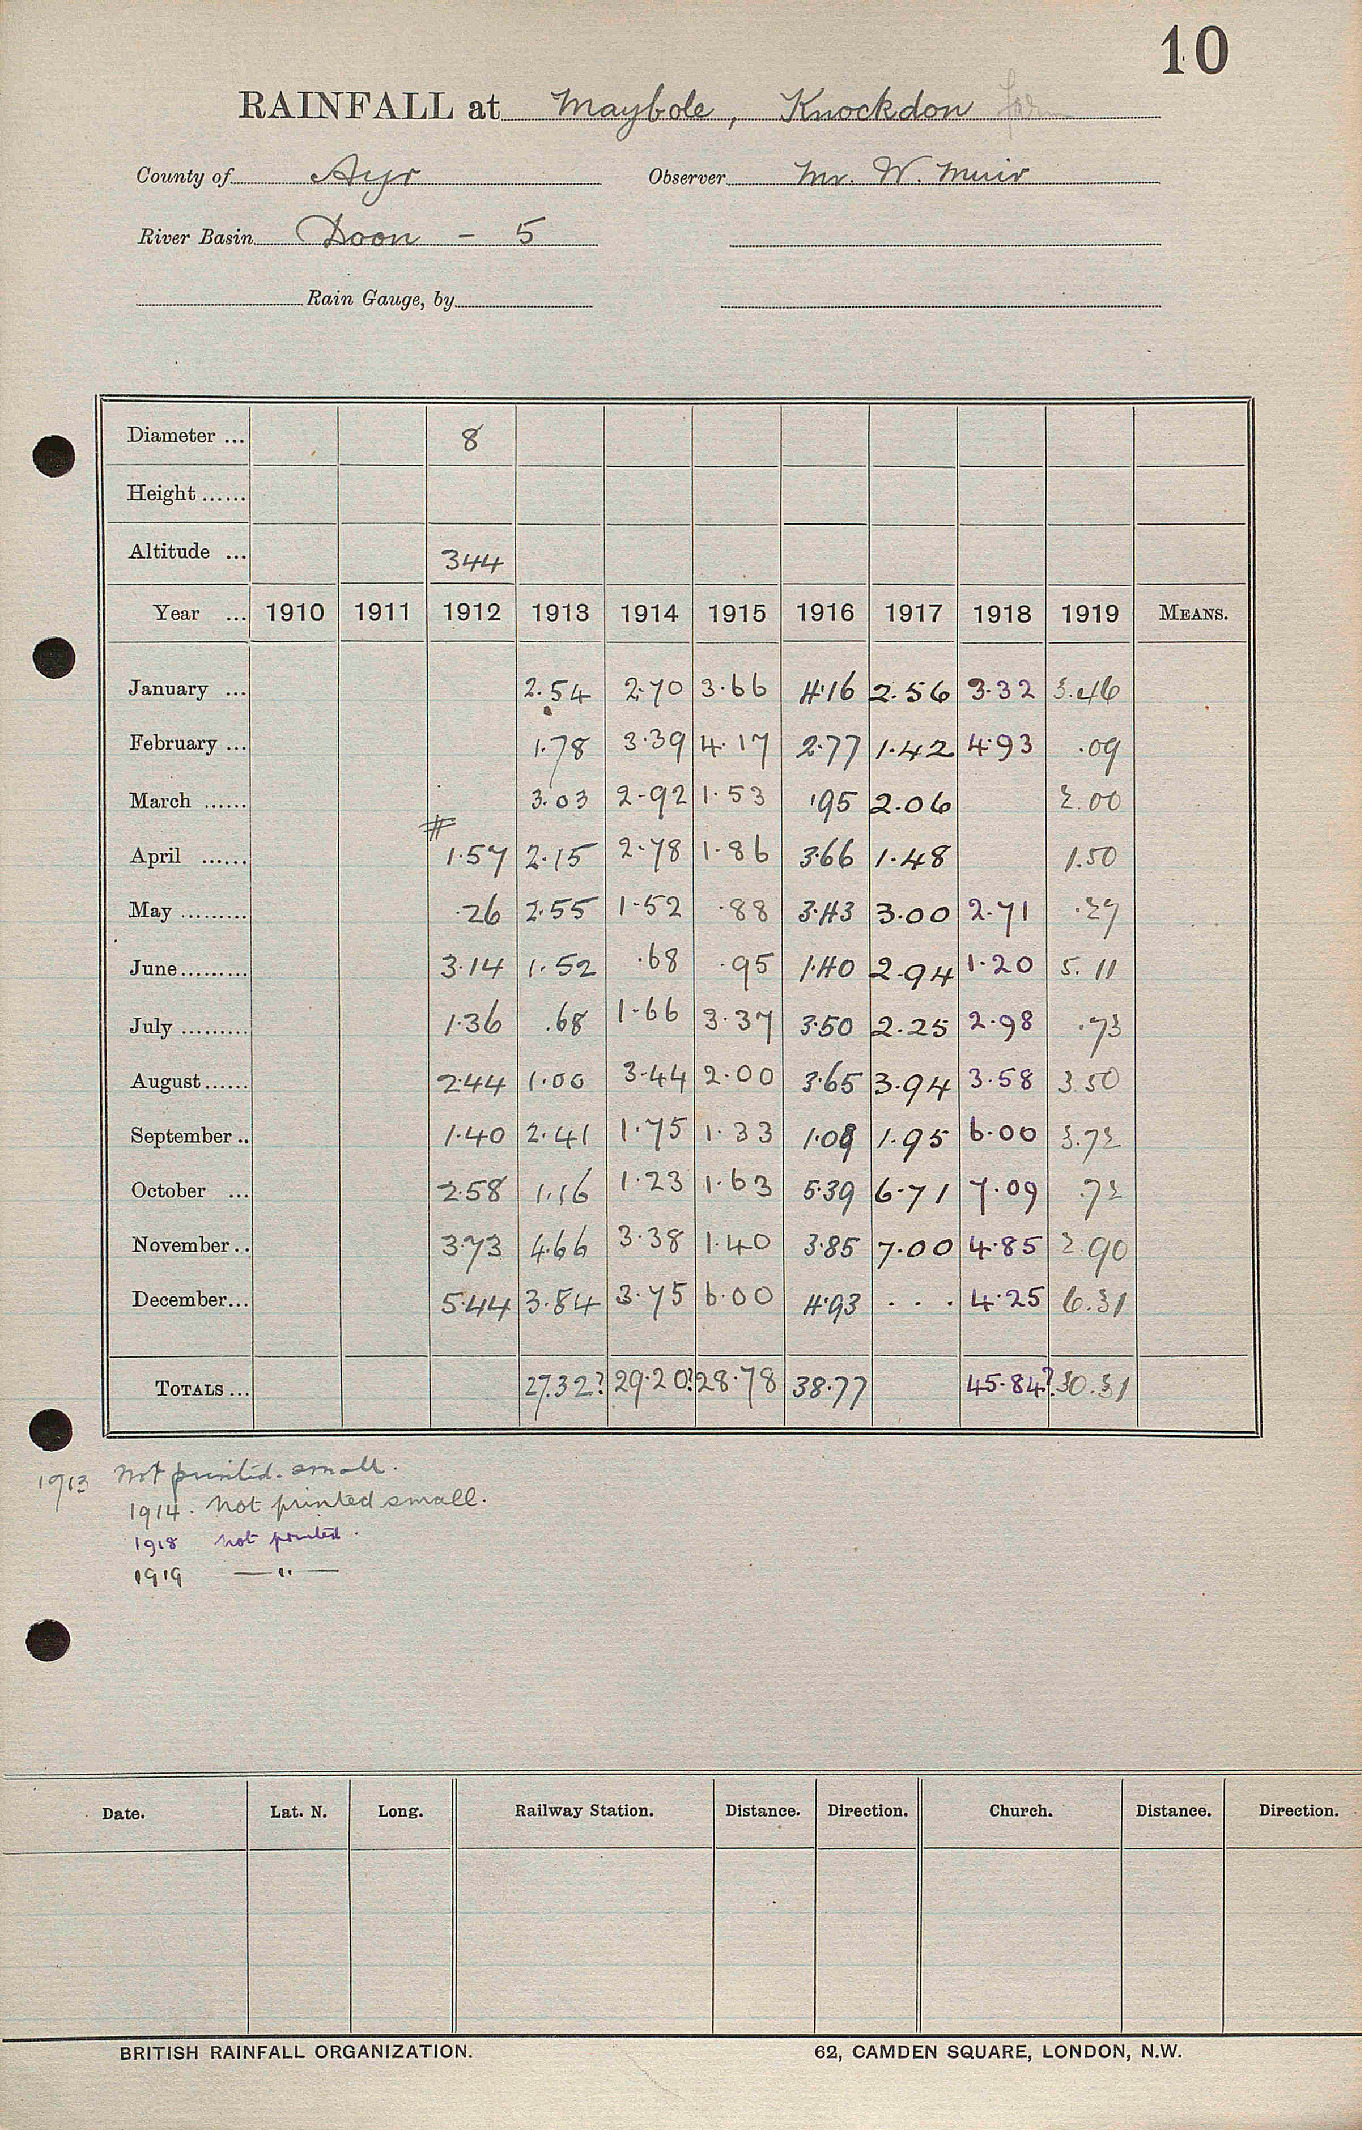 10
RAINFALL at Maybole, Knockdon farm
County of Ayr Observer Mr. W. Muir
River Basin Doon - 5
Rain Gauge, by
Diameter ... 8
Height ......
Altitude ... 344
Year ... 1910 1911 1912 1913 1914 1915 1916 1917 1918 1919 MEANS.
January ... 2.54 2.70 3.66 4.16 2.56 3.32 3.46
February ... 1.78 3.39 4.17 2.77 1.42 4.93 .09
March ...... 3.03 2.92 1.53 .95 2.06 2.00
April ...... # 1.57 2.15 2.78 1.86 3.66 1.48 1.50
May ......... .26 2.55 1.52 .88 3.43 3.00 2.71 .27
June......... 3.14 1.52 .68 .95 1.40 2.94 1.20 5.11
July ......... 1.36 .68 1.66 3.37 3.50 2.25 2.98 .73
August...... 2.44 1.00 3.44 2.00 3.65 3.94 3.58 3.50
September .. 1.40 2.41 1.75 1.33 1.08 1.95 6.00 3.72
October ... 2.58 1.16 1.23 1.63 5.39 6.71 7.09 .72
November .. 3.73 4.66 3.38 1.40 3.85 7.00 4.85 2.90
December... 5.44 3.84 3.75 6.00 4.93 . . . 4.25 6.31
TOTALS ... 27.32? 29.20? 28.78 38.77 45.84? 30.31
1913 Not printed. small.
1914. Not printed small.
1918 not printed.
1919 — " —
Date. Lat. N. Long. Railway Station. Distance. Direction. Church. Distance. Direction.
BRITISH RAINFALL ORGANIZATION. 62, CAMDEN SQUARE, LONDON, N.W.